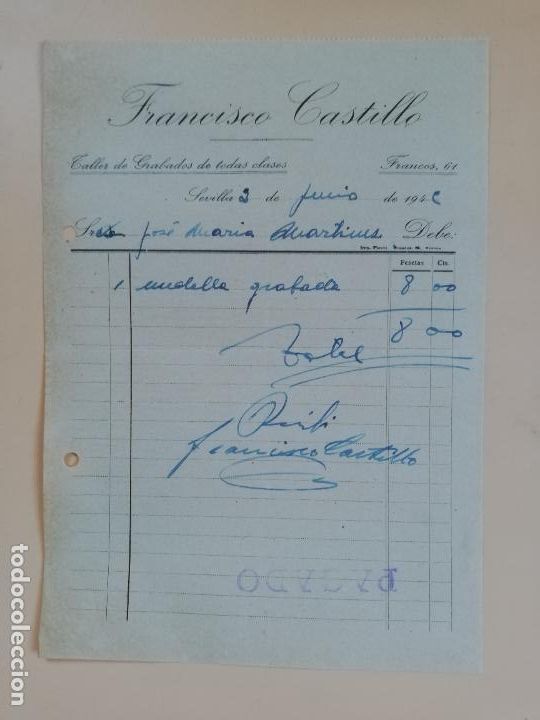 Francisco Castillo
Taller de Grabados de todas clases Francos, 61
Sevilla 2 de Junio de 194
José Maria Martinez Debe:
Pesetas Cts.
1 medalla grabada 8 00
Total 8 00
Recibí
Francisco Castillo
PAGADO
todocoleccion
todocoleccion.net